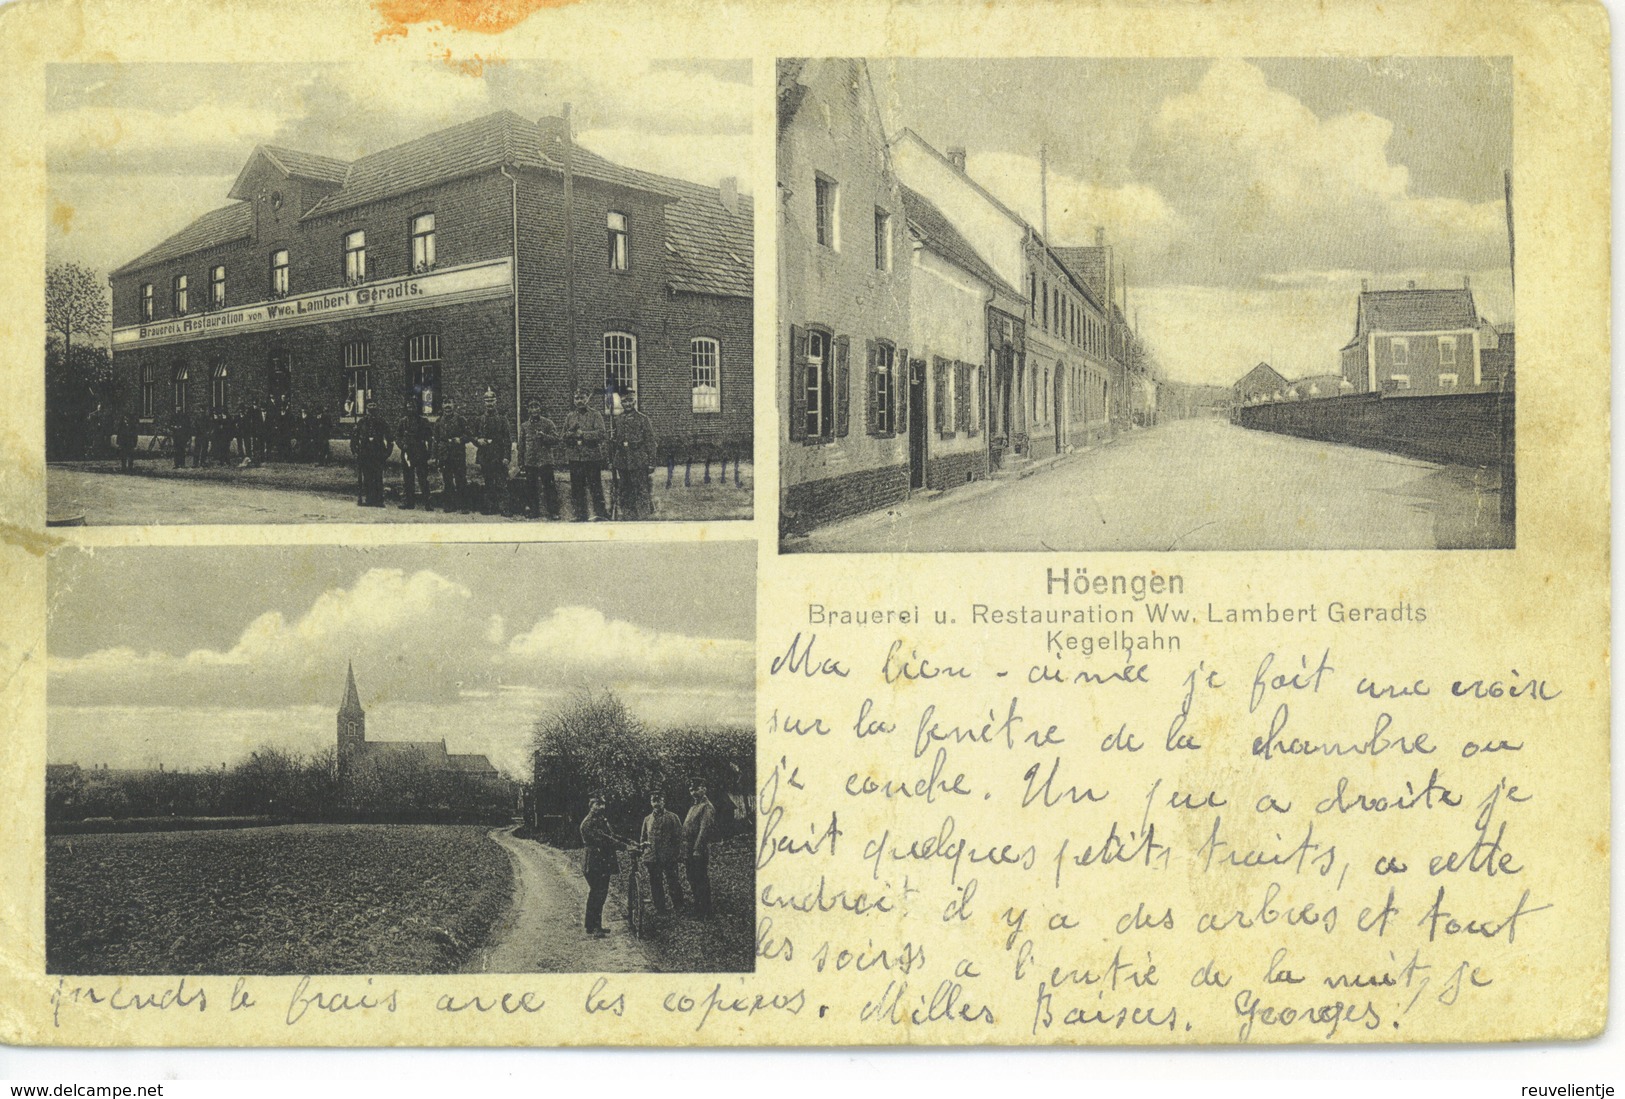 Brauerei & Restauration von Wwe. Lambert Geradts.
Höengen
Brauerei u. Restauration Ww. Lambert Geradts
Kegelbahn
Ma bien-aimée je fait une croix
sur la fenêtre de la chambre ou
je couche. Un peu a droite je
fait quelques petits traits, a cette
endroit il y a des arbres et tout
les soirs a l'entré de la nuit, je
prends le frais avec les copins. Milles Baisers. Georges!
delcampe.net
reuvelientje